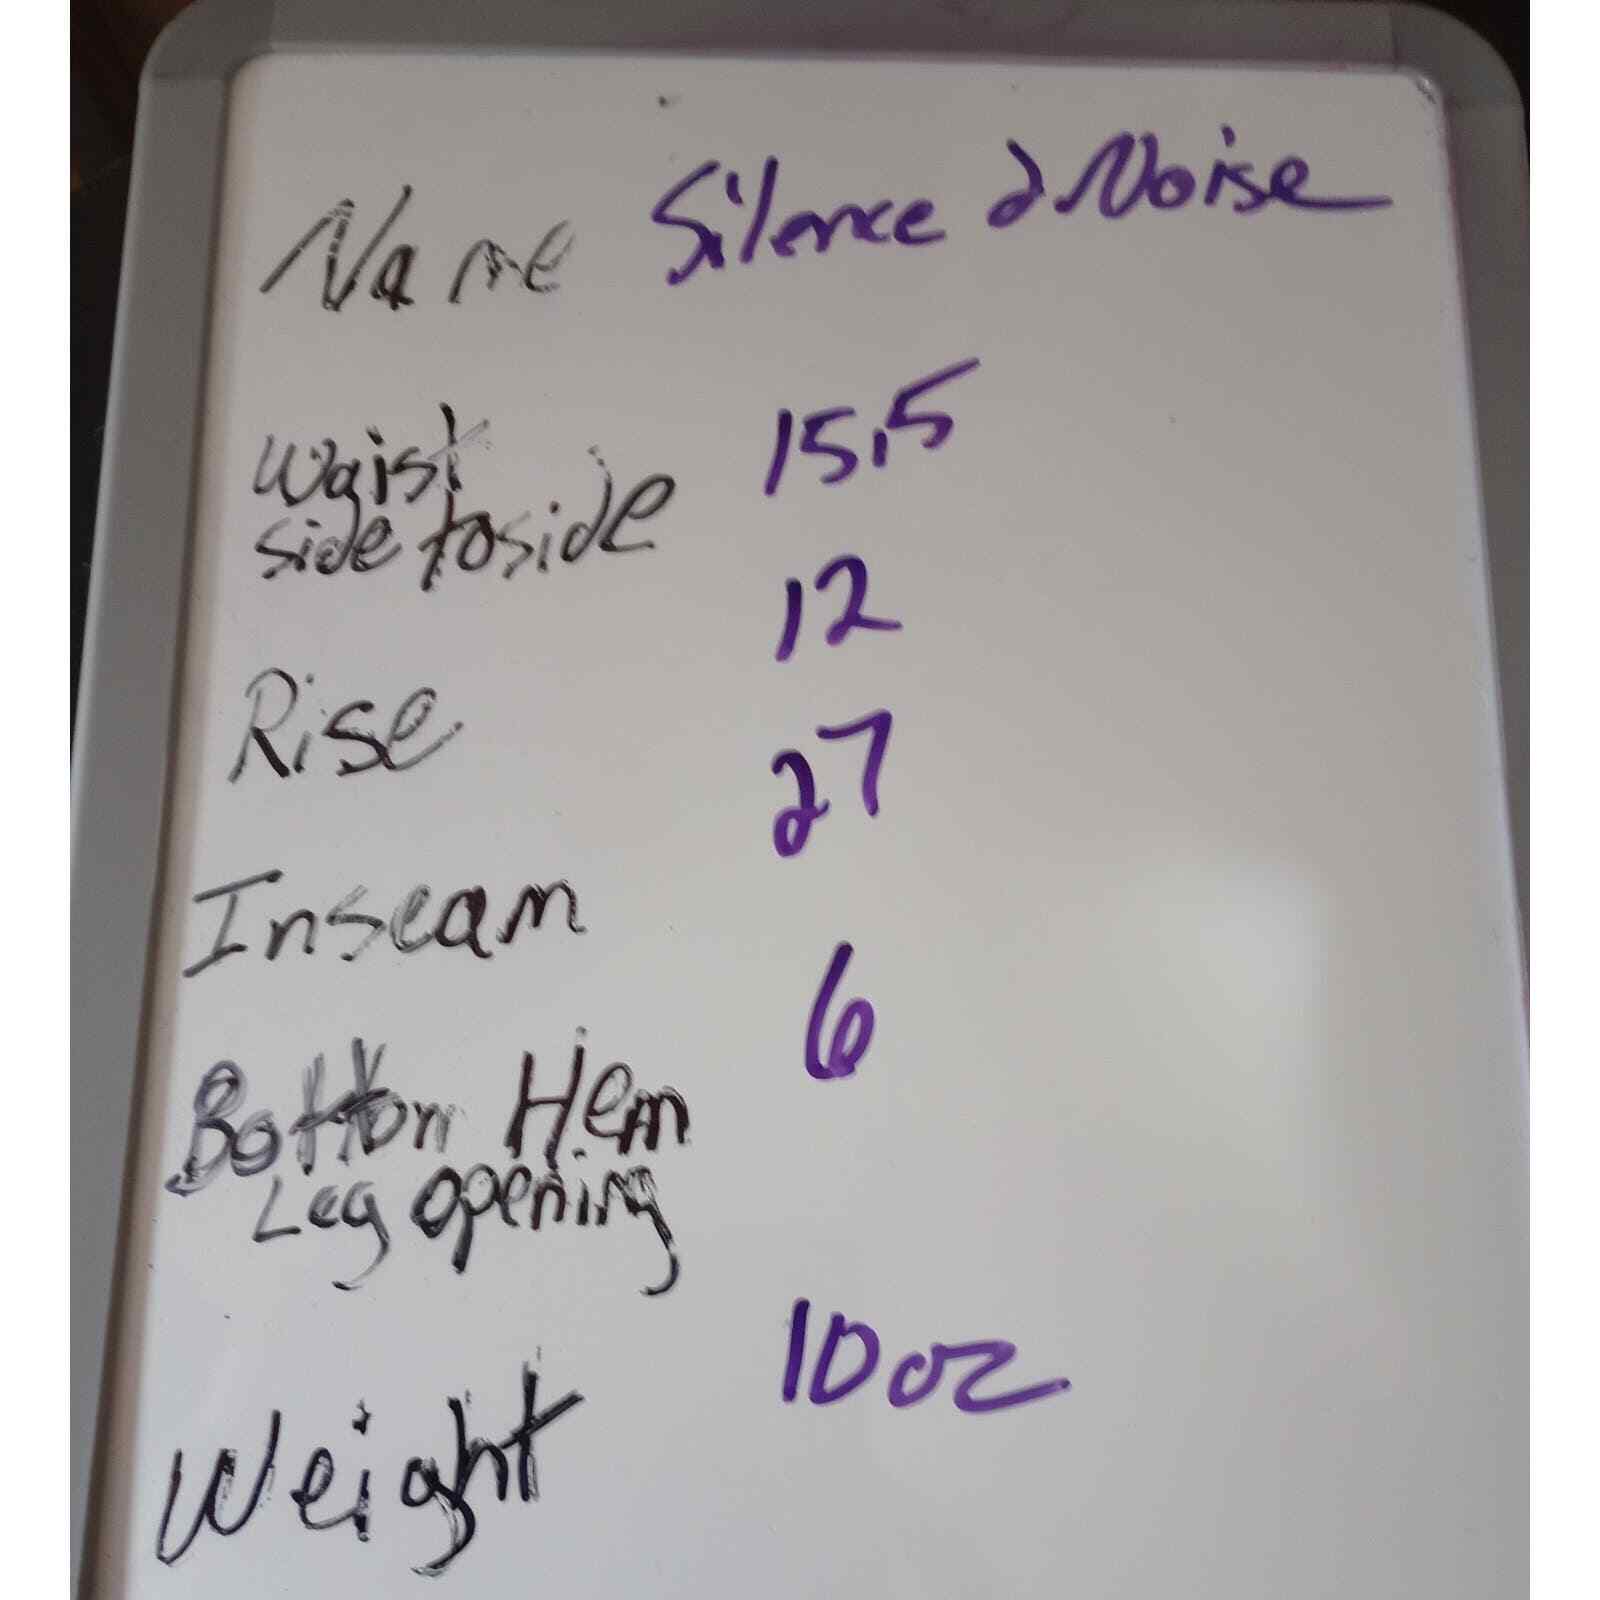 Name Silence & Noise
Waist 15.5
side to side
12
Rise
27
Inseam
6
Bottom Hem
Leg opening
10 oz
Weight